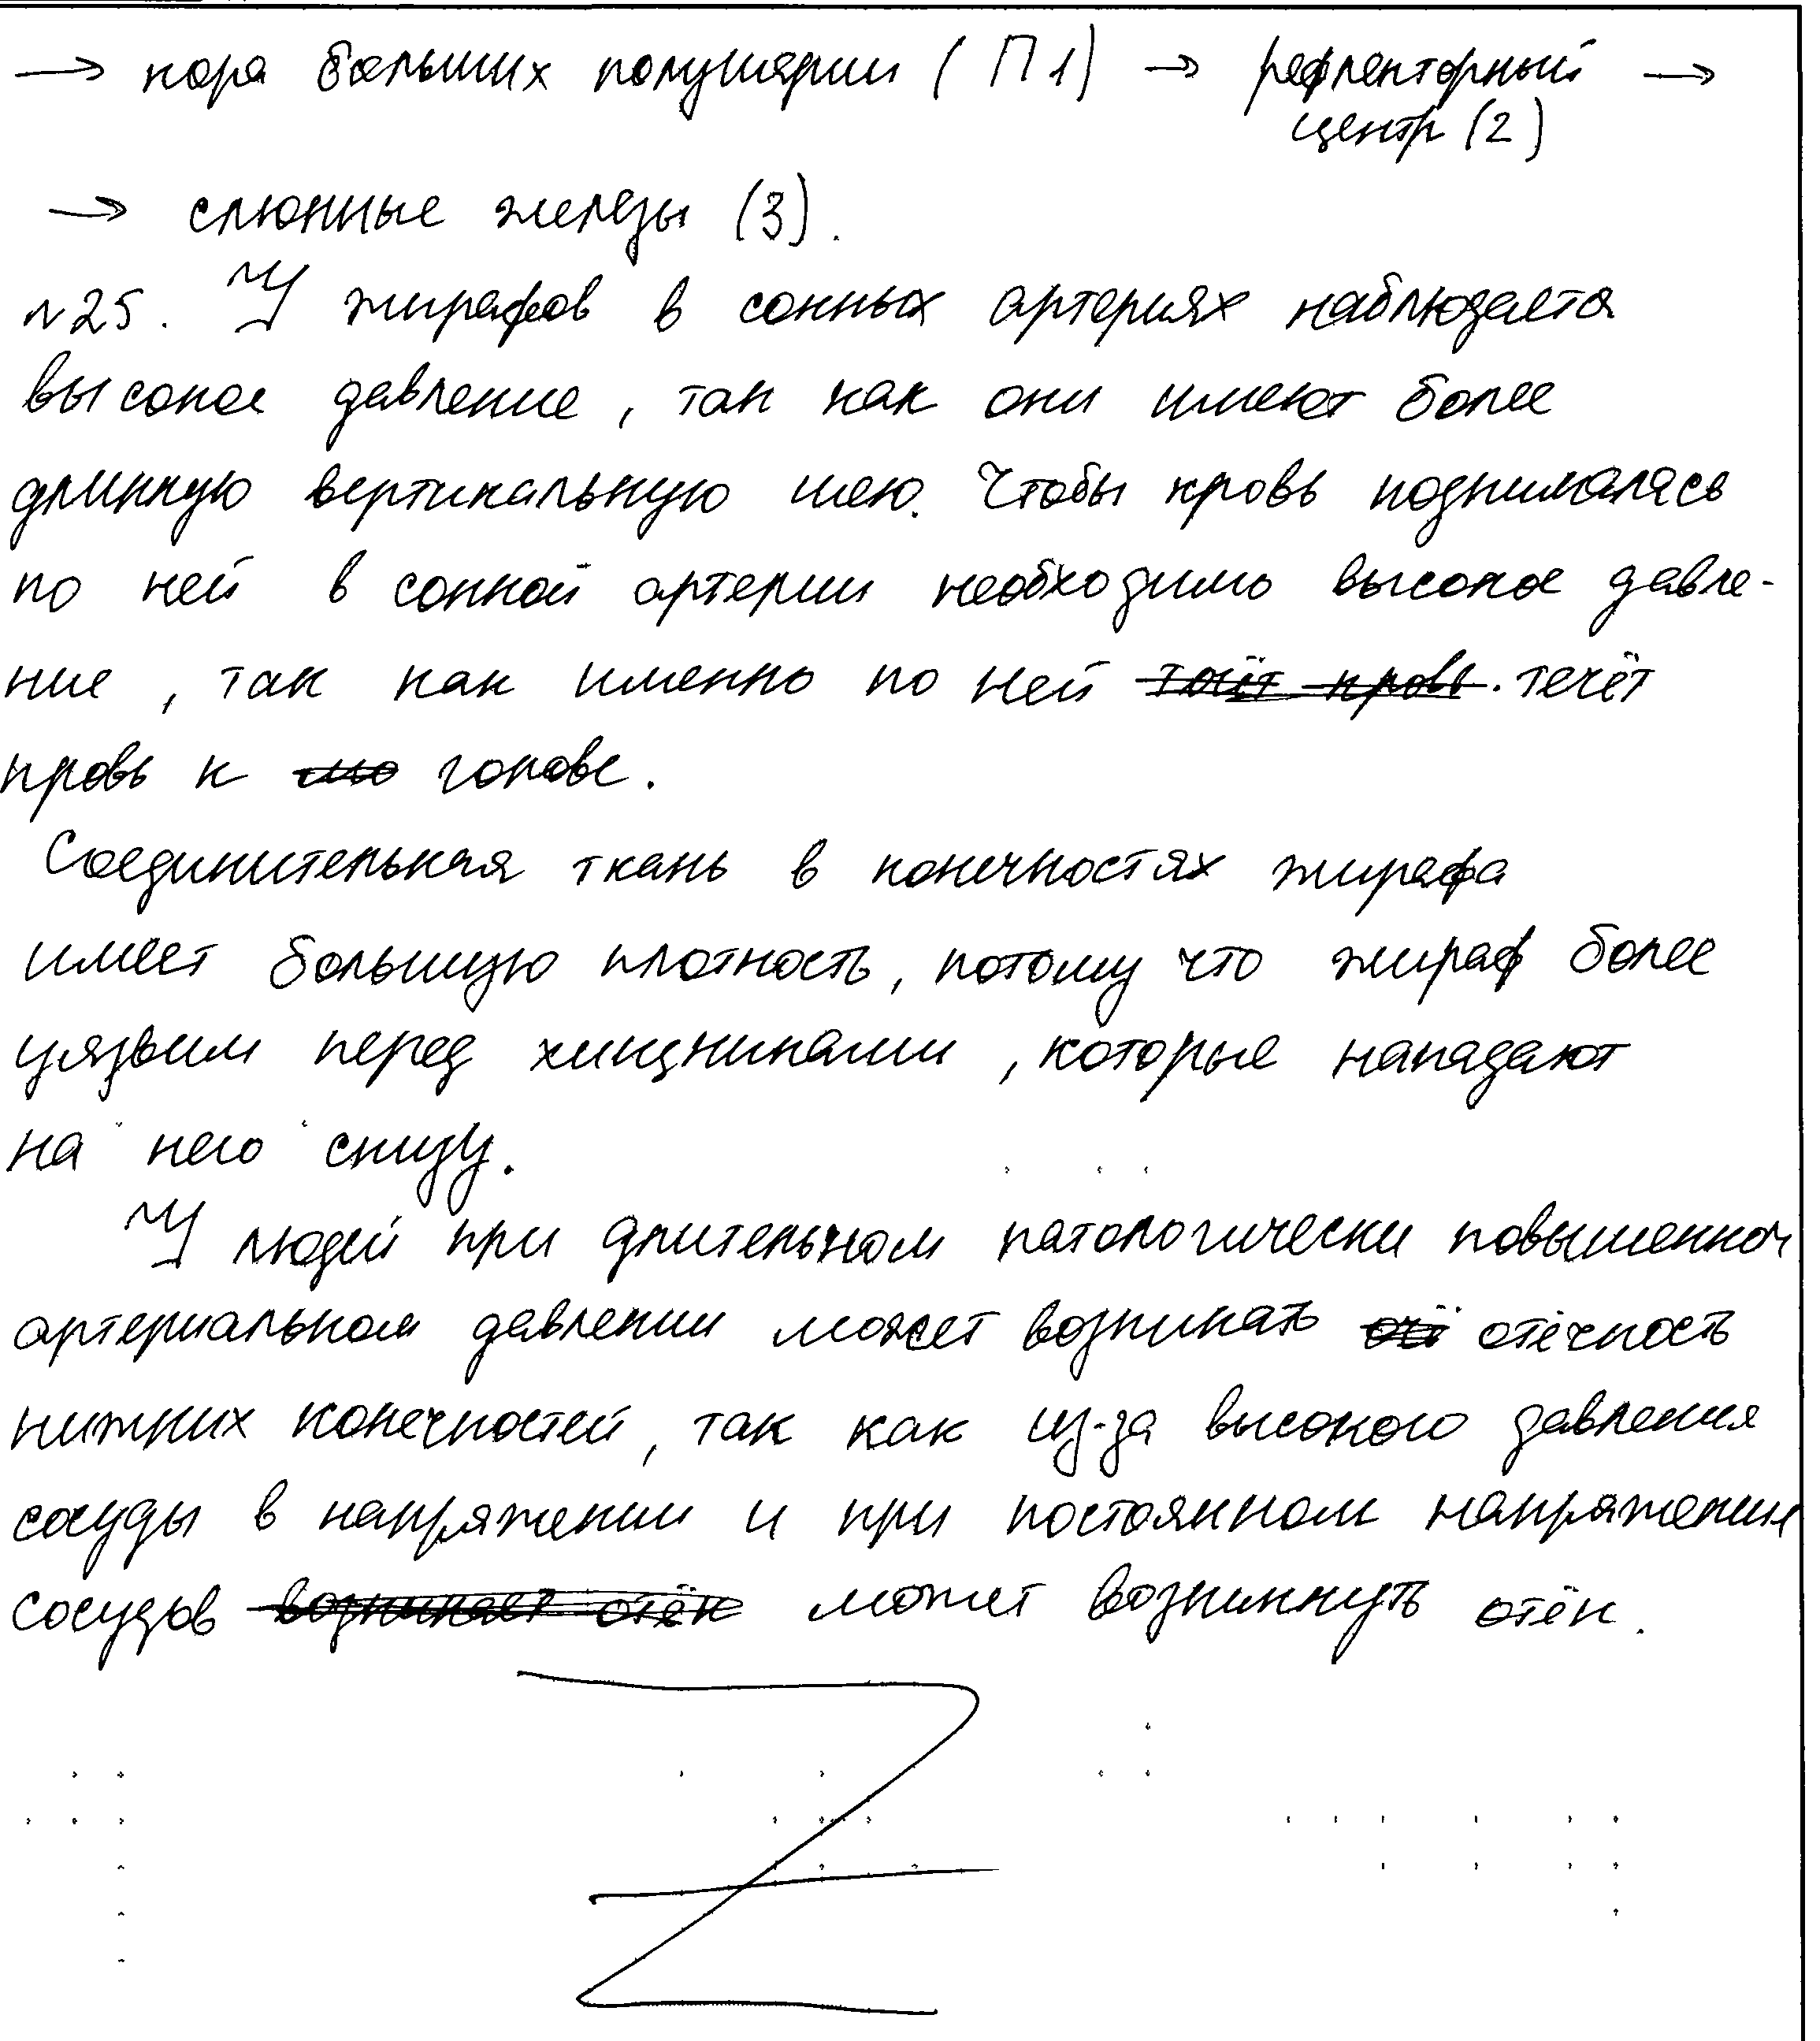 → кора больших полушарий (П1) → рефлекторный →
центр (2)
→ слюнные железы (3).
№25. У жирафов в сонных артериях наблюдается
высокое давление, так как они имеют более
длинную вертикальную шею. Чтобы кровь поднималась
по ней в сонной артерии необходимо высокое давле-
ние, так как именно по ней течёт кровь. течёт
кровь к голове.
Соединительная ткань в конечностях жирафа
имеет большую плотность, потому что жираф более
уязвим перед хищниками, которые нападают
на него снизу.
У людей при длительном патологически повышенном
артериальном давлении может возникать отёчность
нижних конечностей, так как из-за высокого давления
сосуды в напряжении и при постоянном напряжении
сосудов возникает отёк может возникнуть отёк.